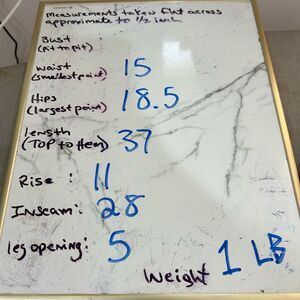 Measurements taken flat across
approximate to 1/2 inch
Bust :
(Pit to Pit)
Waist 15
(smallest point)
Hips 18.5
(largest point)
length 37
(Top to Hem)
Rise : 11
Inseam: 28
leg opening: 5
Weight 1 LB